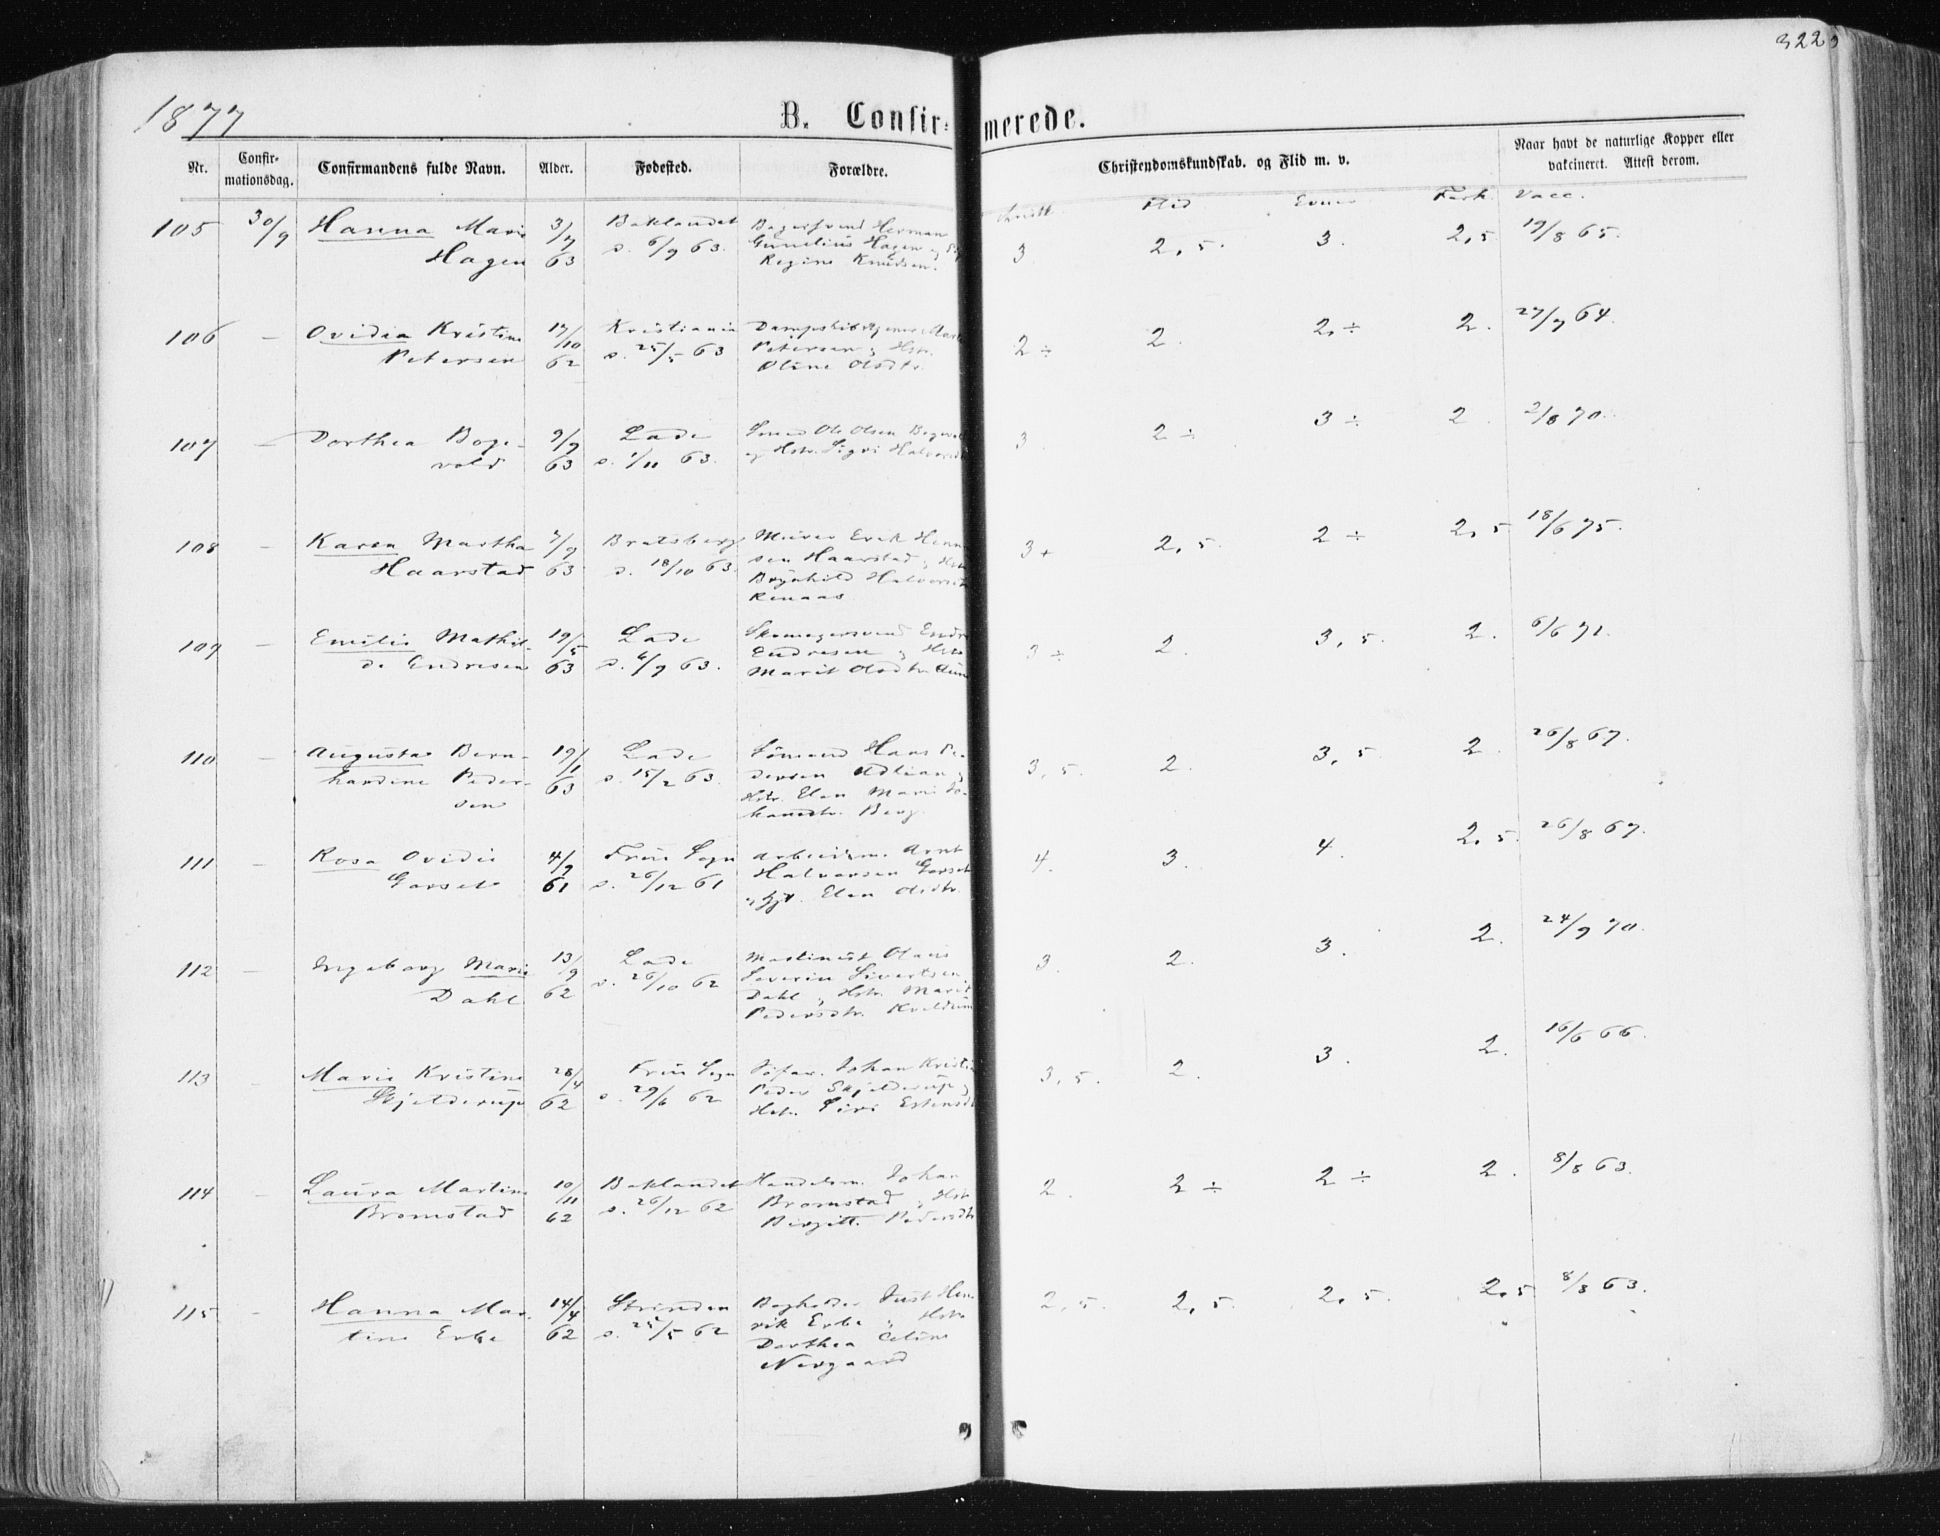 322
1877
B. Confir-
merede.
Nr.
Confir-
mationsdag.
Confirmandens fulde Navn.
Alder.
Fødested.
Forældre.
Christendomskundskab. og Flid m. v.
Naar havt de naturlige Kopper eller
vakcineret. Attest derom.
Flid Evner Vacc.
105 30/9 Hanna Marie 3/7 Baklandet Bagersvend Herman
Hagen 63 d. 6/9 63. Hagen
Regine Knudsen.
3. 2,5. 3. 2,5 19/8 65.
106 — Ovidia Kristine 17/10 Kristiania
Petersen 62 d. 25/5 63 Petersen og Hstr.
Oline Olsdtr.
2 ÷ 2. 2. ÷ 2. 27/7 64.
107 — Dorthea Boge- 9/9 Lade Ole Olsen
vold 63 d. 1/11 63. og Hstr. Sigri
3. 2 ÷ 3 ÷ 2. 2/8 70.
108 — Karen Martha 7/9 Bratsberg Murer Erik
Haarstad 63 d. 18/10 63. sen Haarstad og Hstr.
Brynhild
Renaas
3+ 2,5. 2 ÷ 2,5 18/6 75.
109 — Emilie Mathil- 19/5 Lade Skomagersvend
de Endresen 63 d. 6/9 63. Endresen og Hstr.
Marit Olsdtr.
3 ÷ 2. 3,5. 2. 6/6 71.
110 — Augusta Bern- 19/1 Lade Hans Pe-
hardine Peder- 63 d. 15/2 63. dersen
sen Hstr. Elen Marie Jo-
Berg.
3,5. 2. 3,5. 2. 26/8 67.
111 — Rosa Ovidie 4/9 Frue Sogn Arbeidsm. Arnt
Garset 61 d. 26/12 61 Halvorsen Garset
Elen Olsdtr.
4. 3. 4. 2,5. 26/8 67.
112 — Ingeborg Marie 13/9 Lade Maskinist Olaus
Dahl 62 d. 26/10 62 Severin Sivertsen
Dahl og Hstr. Marit
Pedersdtr.
3. 2. 3. 2. 24/9 70.
113 — Marie Kristine 28/4 Frue Sogn Johan
Skjelderup 62 d. 29/6 62 Peder Skjelderup og
Hstr. Siri
3,5. 2. 3. 2. 16/6 66.
114 — Laura Martine 10/11 Baklandet Handelsm. Johan
Bromstad 62 d. 26/12 62 Bromstad og Hstr.
Birgitte Pedersdtr
2. 2 ÷ 2 ÷ 2. 8/8 63.
115 — Hanna Mar- 14/4 Strinden Bogholder Just Hen-
tine Erbe 62 d. 25/5 62 rik Erbe og Hstr.
Dorthea Celine
Nergaard
2,5. 2,5. 2,5. 2,5 8/8 63.